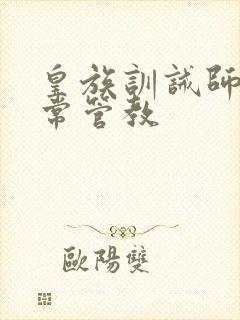 皇族訓誡師
常管教
歐陽雙